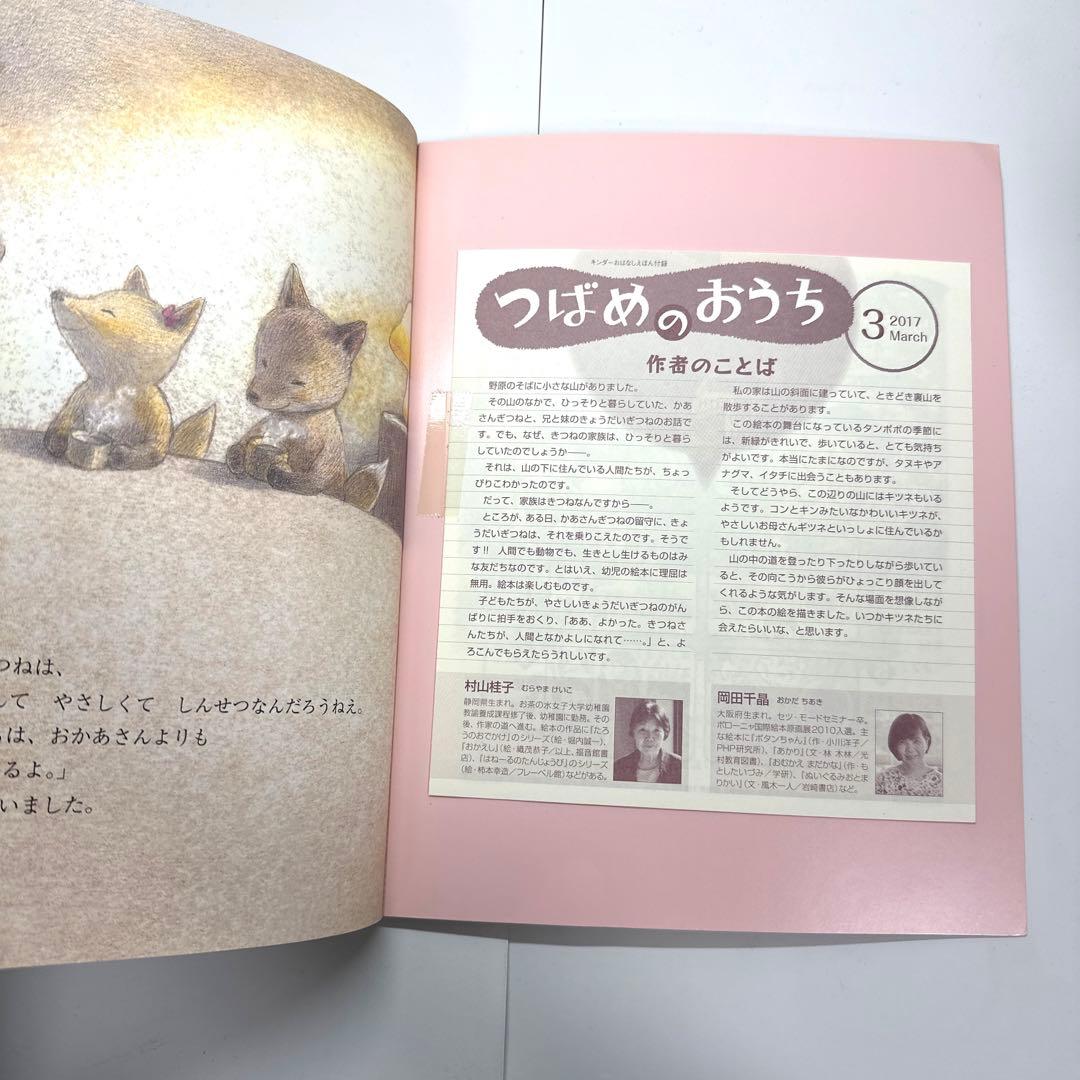 つねは、
して やさしくて しんせつなんだろうねえ。
は、おかあさんよりも
るよ。」
いました。
キンダーおはなしえほん付録
つばめのおうち
3 2017 March
作者のことば
野原のそばに小さな山がありました。
その山のなかで、ひっそりと暮らしていた、かあ
さんぎつねと、兄と妹のきょうだいぎつねのお話で
す。でも、なぜ、きつねの家族は、ひっそりと暮ら
していたのでしょうか――。
それは、山の下に住んでいる人間たちが、ちょっ
ぴりこわかったのです。
だって、家族はきつねなんですから――。
ところが、ある日、かあさんぎつねの留守に、きょ
うだいぎつねは、それを乗りこえたのです。そうで
す!! 人間でも動物でも、生きとし生けるものはみ
な友だちなのです。とはいえ、幼児の絵本に理屈は
無用。絵本は楽しむものです。
子どもたちが、やさしいきょうだいぎつねのがん
ばりに拍手をおくり、「ああ、よかった。きつねさ
んたちが、人間となかよしになれて……。」と、よ
ろこんでもらえたらうれしいです。
私の家は山の斜面に建っていて、ときどき裏山を
散歩することがあります。
この絵本の舞台になっているタンポポの季節に
は、新緑がきれいで、歩いていると、とても気持ち
がよいです。本当にたまになのですが、タヌキやア
ナグマ、イタチに出会うこともあります。
そしてどうやら、この辺りの山にはキツネもいる
ようです。コンとキンみたいなかわいいキツネが、
やさしいお母さんギツネといっしょに住んでいるか
もしれません。
山の中の道を登ったり下ったりしながら歩いてい
ると、その向こうから彼らがひょっこり顔を出して
くれるような気がします。そんな場面を想像しなが
ら、この本の絵を描きました。いつかキツネたちに
会えたらいいな、と思います。
村山桂子 むらやま けいこ
静岡県生まれ。お茶の水女子大学幼稚園
教諭養成課程修了後、幼稚園に勤務。その
後、作家の道へ進む。絵本の作品に『たろ
うのおでかけ』のシリーズ(絵・堀内誠一)、
『おかえし』(絵・織茂恭子/以上、福音館書
店)、『はねーるのたんじょうび』のシリーズ
(絵・柿本幸造/フレーベル館)などがある。
岡田千晶 おかだ ちあき
大阪府生まれ。セツ・モードセミナー卒。
ボローニャ国際絵本原画展2010入選。主
な絵本に『ボタンちゃん』(作・小川洋子/
PHP研究所)、『あかり』(文・林 木林/光
村教育図書)、『おむかえ まだかな』(作・も
としたいづみ/学研)、『ぬいぐるみおとま
りかい』(文・風木一人/岩崎書店)など。